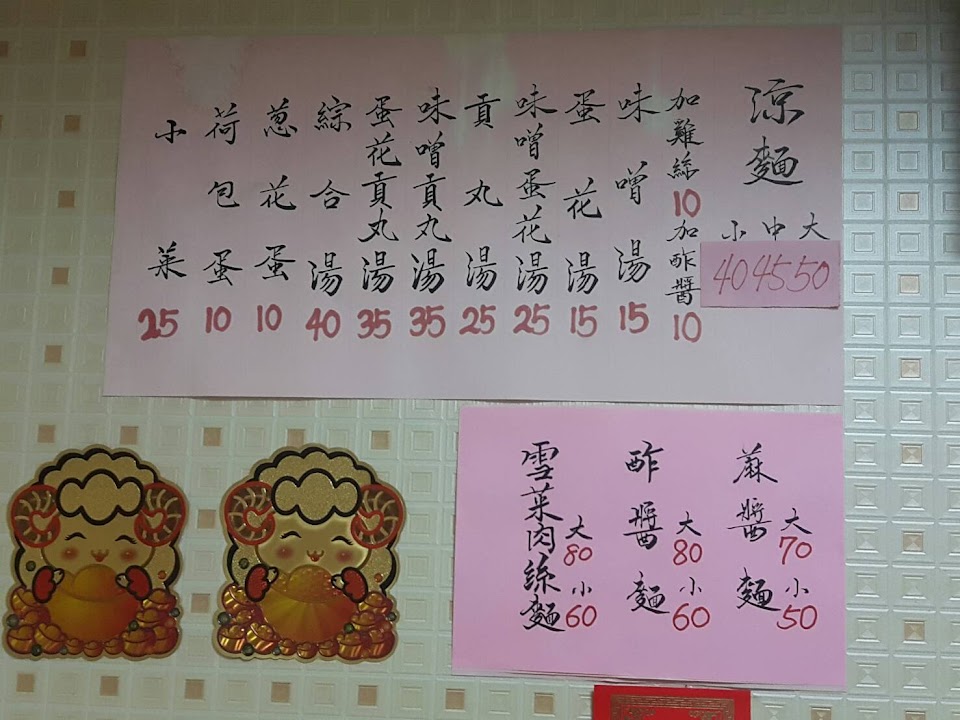 涼麵
小 中 大
40 45 50
加雞絲10
加酢醬10
味噌湯15
蛋花湯15
味噌蛋花湯25
貢丸湯25
味噌貢丸湯35
蛋花貢丸湯35
綜合湯40
蔥花蛋10
荷包蛋10
小菜25
麻醬麵 大70 小50
酢醬麵 大80 小60
雪菜肉絲麵 大80 小60